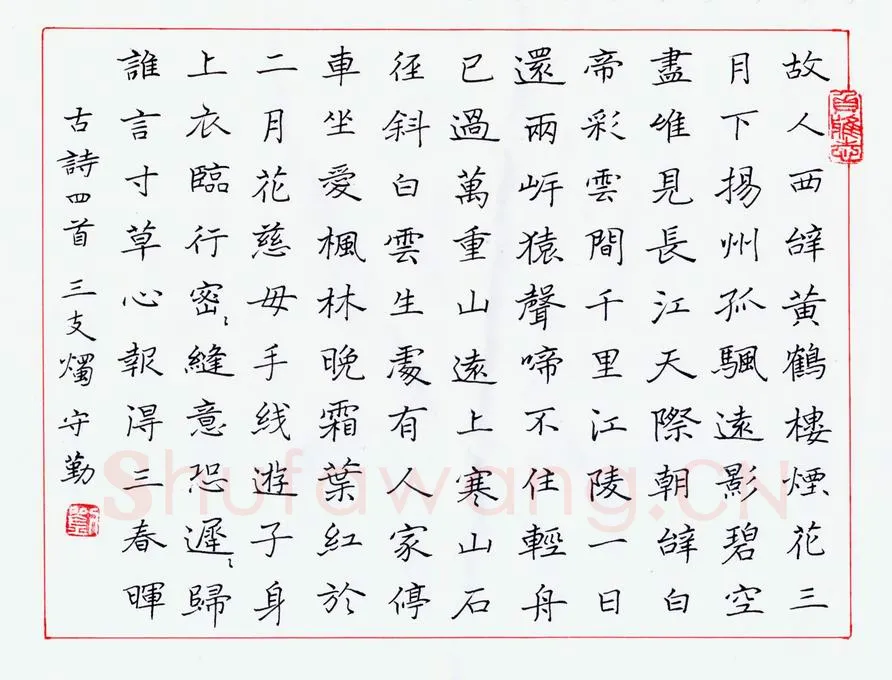 故人西辭黃鶴樓煙花三
月下揚州孤颿遠影碧空
盡唯見長江天際朝辭白
帝彩雲間千里江陵一日
還兩岸猿聲啼不住輕舟
已過萬重山遠上寒山石
徑斜白雲生處有人家停
車坐愛楓林晚霜葉紅於
二月花慈母手线遊子身
上衣臨行密〻縫意恐遲〻歸
誰言寸草心報得三春暉
古詩四首 三支燭 守勤
Shufawang.CN